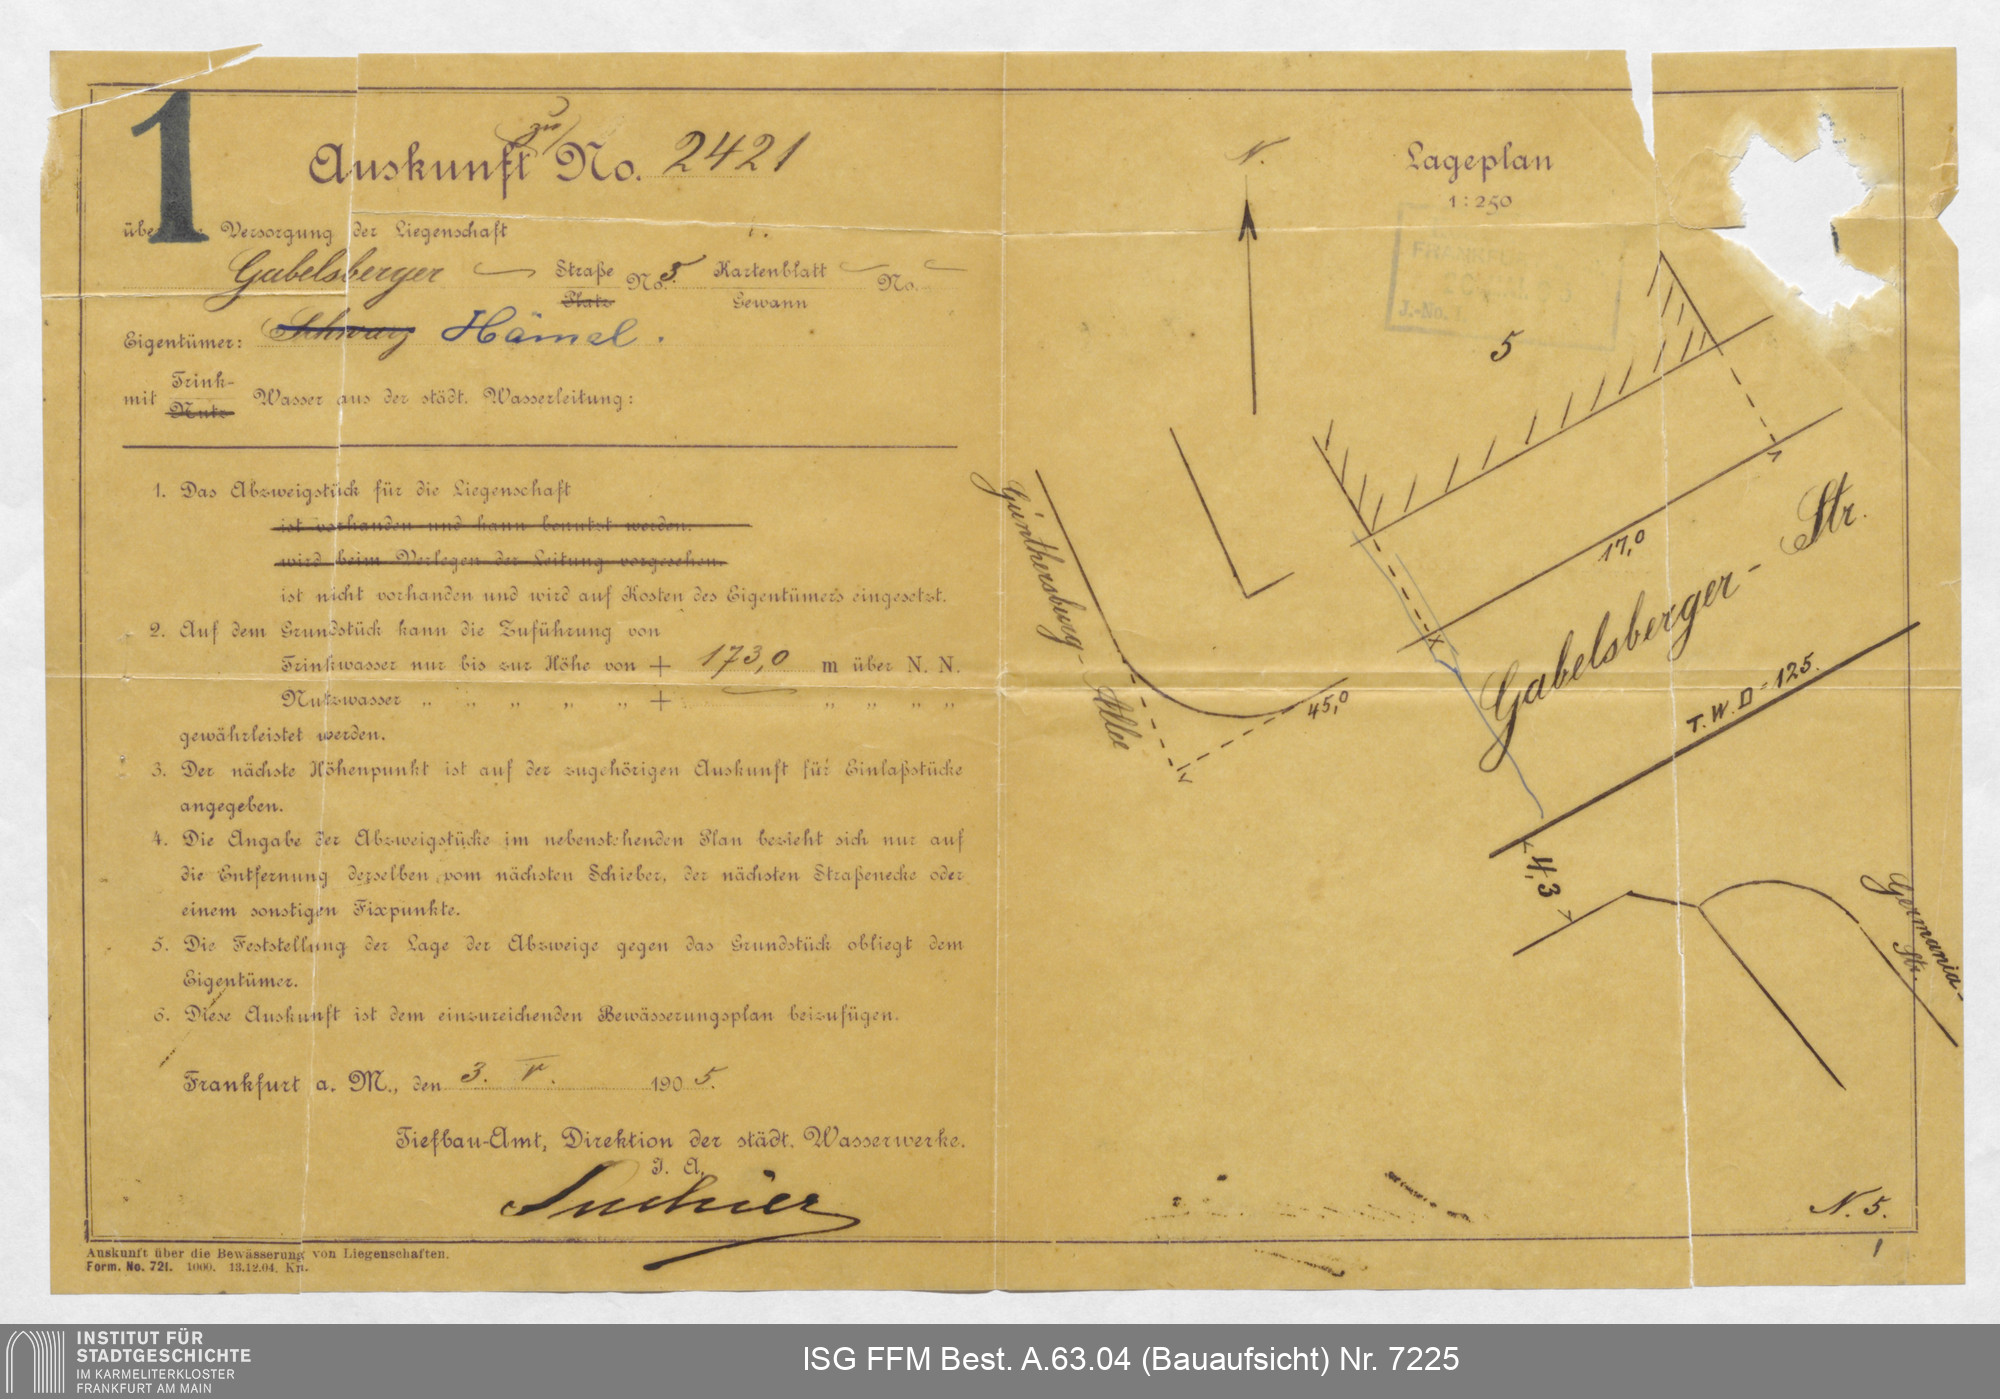 1
(zu)
Auskunft No. 2421
über Versorgung der Liegenschaft
Gabelsberger Straße No. 5. Kartenblatt No.
Platz Gewann
Eigentümer: Schwarz Hämel.
Trink-
mit Wasser aus der städt. Wasserleitung:
Nutz-
1. Das Abzweigstück für die Liegenschaft
ist vorhanden und kann benutzt werden.
wird beim Verlegen der Leitung vorgesehen.
ist nicht vorhanden und wird auf Kosten des Eigentümers eingesetzt.
2. Auf dem Grundstück kann die Zuführung von
Trinkwasser nur bis zur Höhe von + 173,0 m über N. N.
Nutzwasser „ „ „ „ „ + „ „ „ „
gewährleistet werden.
3. Der nächste Höhenpunkt ist auf der zugehörigen Auskunft für Einlaßstücke
angegeben.
4. Die Angabe der Abzweigstücke im nebenstehenden Plan bezieht sich nur auf
die Entfernung derselben vom nächsten Schieber, der nächsten Straßenecke oder
einem sonstigen Fixpunkte.
5. Die Feststellung der Lage der Abzweige gegen das Grundstück obliegt dem
Eigentümer.
6. Diese Auskunft ist dem einzureichenden Bewässerungsplan beizufügen.
Frankfurt a. M., den 3. V. 1905.
Tiefbau-Amt, Direktion der städt. Wasserwerke.
I. A.
Suchier
Auskunft über die Bewässerung von Liegenschaften.
Form. No. 721. 1000. 13.12.04. Kn.
N.
Lageplan
1:250
FRANKFU
J.-No.
5
17,0
Günthersburg-Allee
45,0
Gabelsberger-Str.
T.W.D=125.
4,3
Germania-
Str.
N. 5.
1
INSTITUT FÜR
STADTGESCHICHTE
IM KARMELITERKLOSTER
FRANKFURT AM MAIN
ISG FFM Best. A.63.04 (Bauaufsicht) Nr. 7225